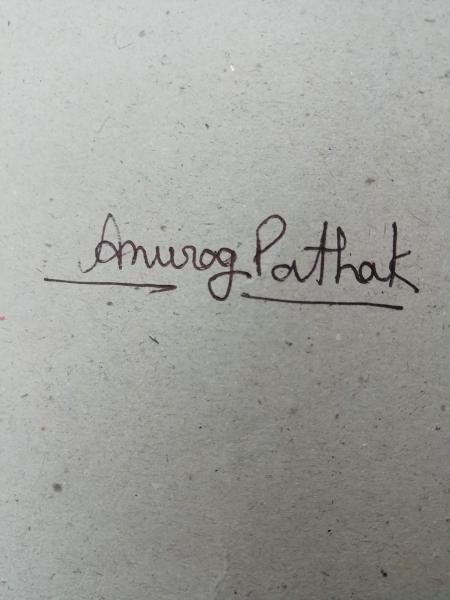 Anurog Pathak